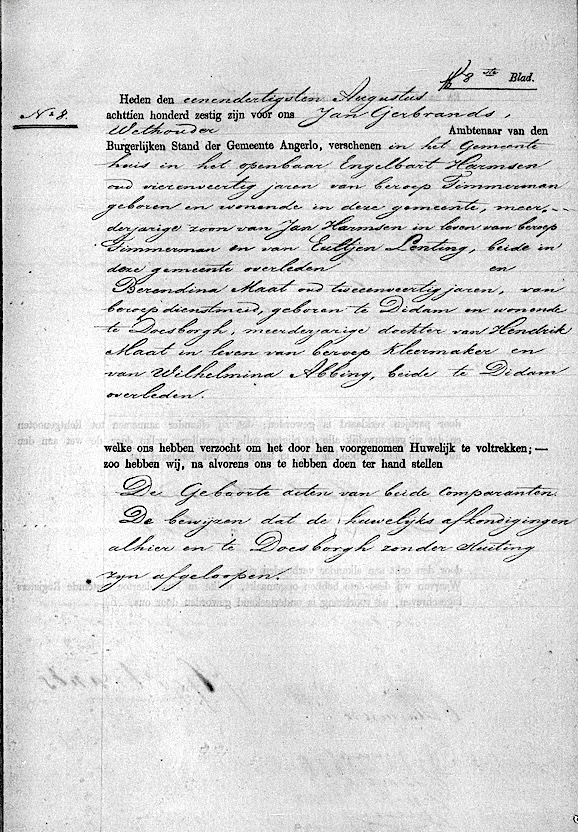 8ste Blad.
Heden den eenendertigsten Augustus
No 8. achttien honderd zestig zijn voor ons Jan Gerbrands,
Wethouder Ambtenaar van den
Burgerlijken Stand der Gemeente Angerlo, verschenen in het Gemeente
huis in het openbaar Engelbart Harmsen
oud vierenveertig jaren van beroep Timmerman
geboren en wonende in deze gemeente, meer
derjarige zoon van Jan Harmsen in leven van beroep
Timmerman en van Eultjen Lenting, beide in
deze gemeente overleden en
Berendina Maat oud tweeenveertig jaren, van
beroep dienstmeid, geboren te Didam en wonende
te Doesborgh, meerderjarige dochter van Hendrik
Maat in leven van beroep Kleermaker en
van Wilhelmina Abbing, beide te Didam
overleden.
welke ons hebben verzocht om het door hen voorgenomen Huwelijk te voltrekken; —
zoo hebben wij, na alvorens ons te hebben doen ter hand stellen
De Geboorte acten van beide Comparanten.
De bewijzen dat de huwelijks afkondigingen
alhier en te Doesborgh zonder stuiting
zyn afgeloopen.